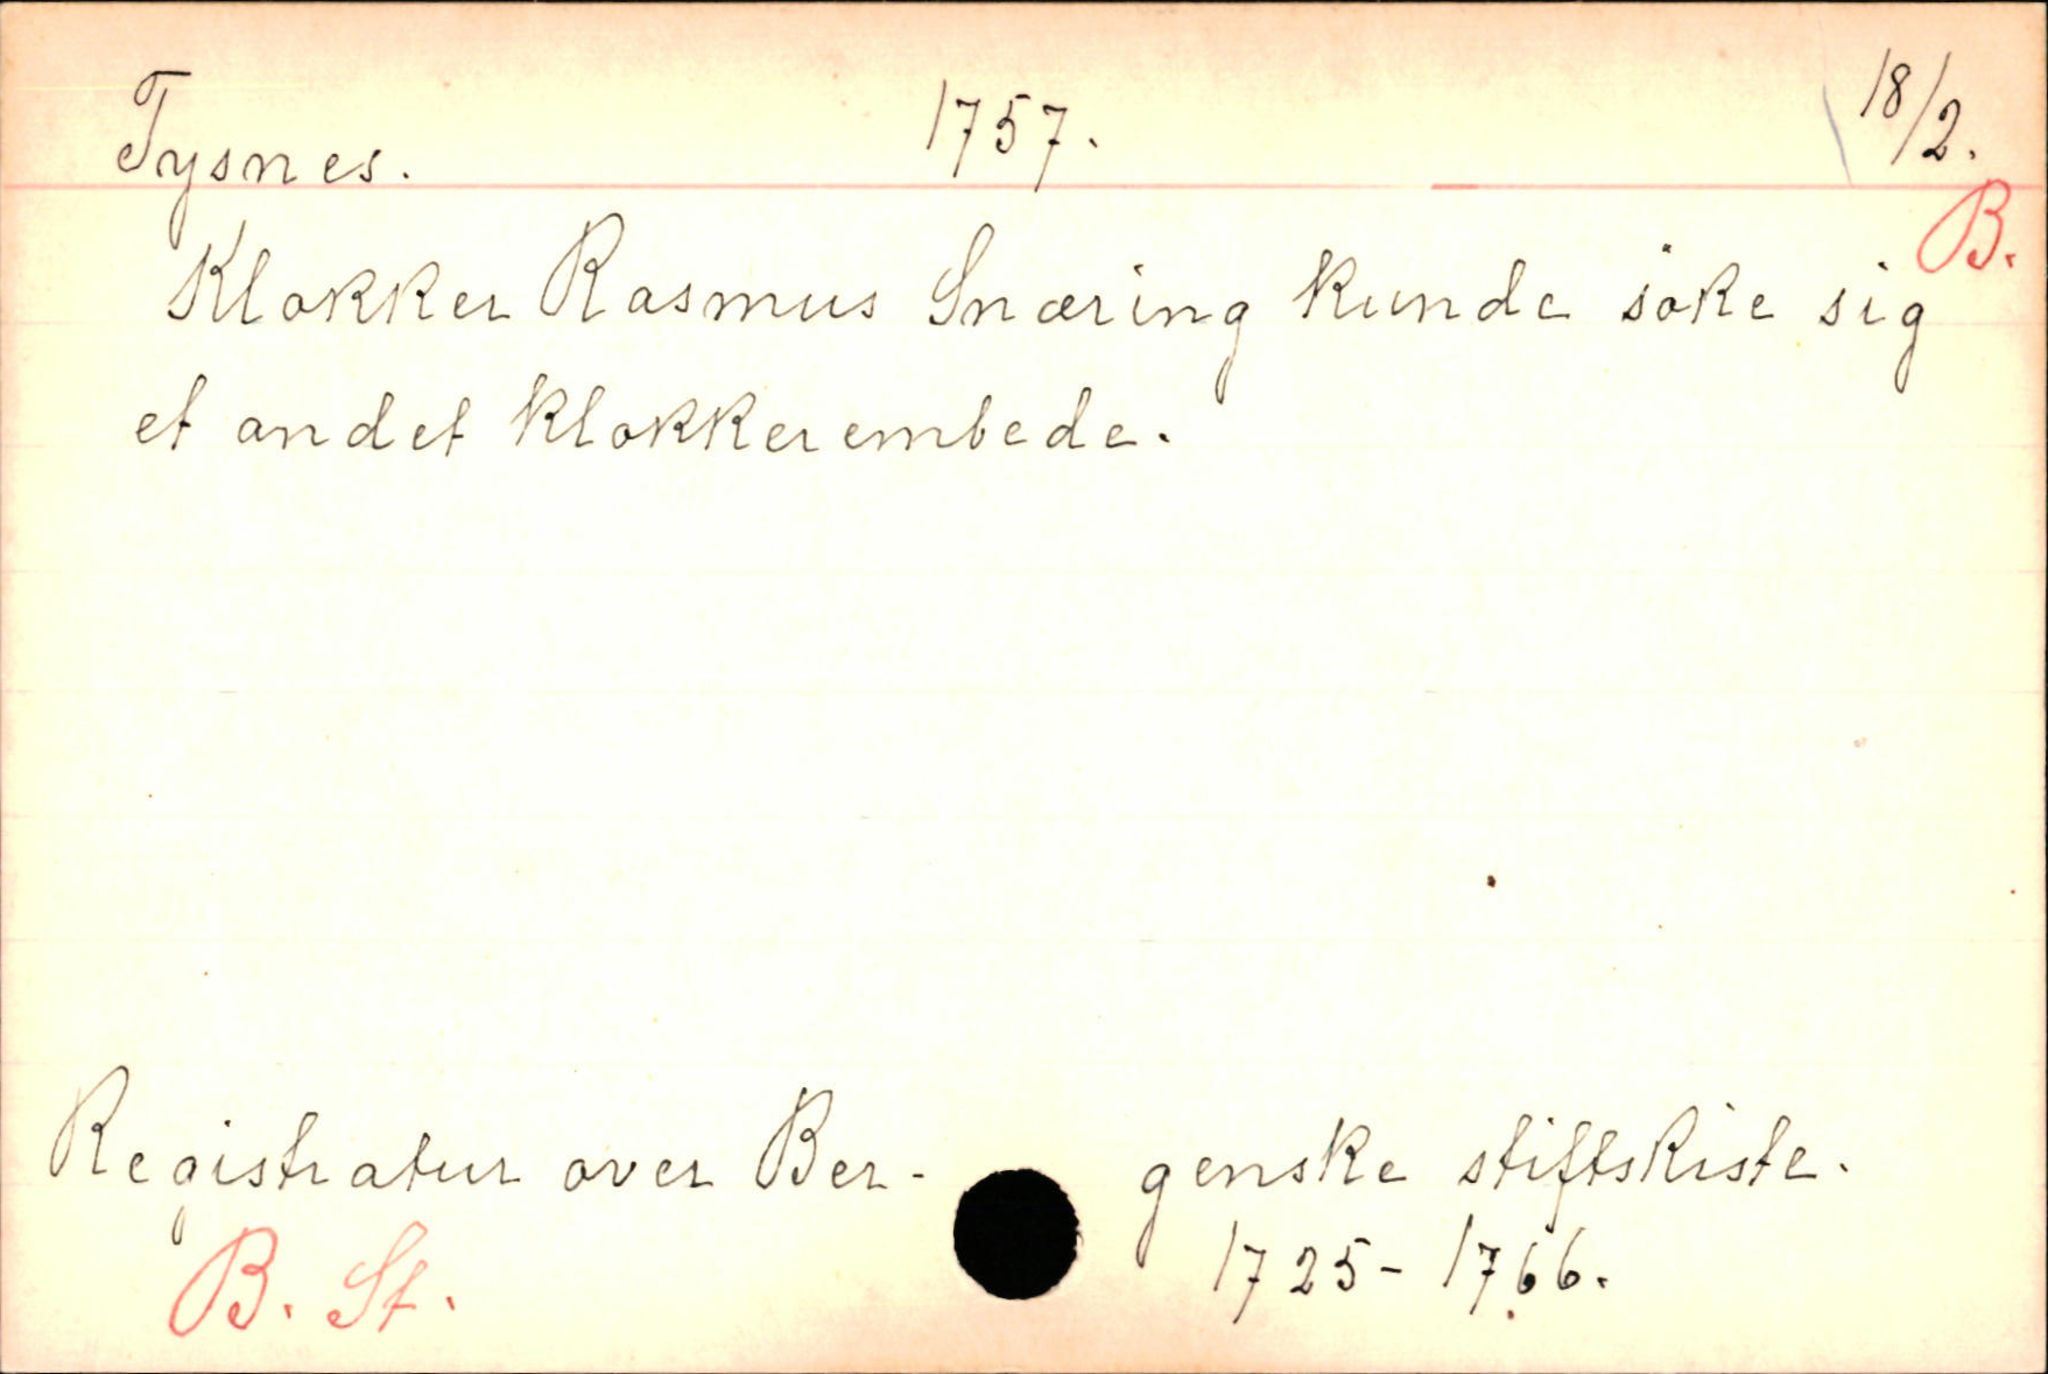 Tysnes. 1757. 18/2.
B.
Klokker Rasmus Snæring kunde söke sig
et andet klokkerembede.
Registratur over Ber- genske stiftskiste.
B. St. 1725-1766.